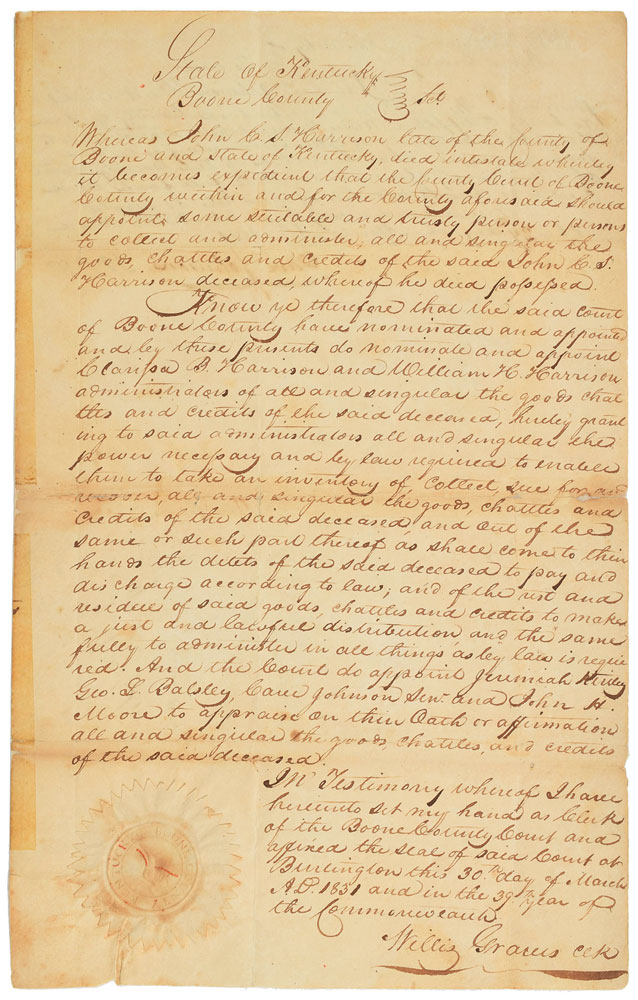 State of Kentucky
Boone County Sct
Whereas John C. S. Harrison late of the County of
Boone and State of Kentucky, died intestate whereby
it becomes expedient that the County Court of Boone
County within and for the County aforesaid should
appoint some suitable and trusty person or persons
to collect and administer, all and singular the
goods, chattles and credits of the said John C. S.
Harrison deceased, whereof he died possessed.
Know ye therefore that the said court
of Boone County have nominated and appointed
and by these presents do nominate and appoint
Clarissa B. Harrison and William H. Harrison
administrators of all and singular the goods chat
tles and credits of the said deceased, hereby grant
ing to said administrators all and singular the
power necessary and by law required to enable
them to take an inventory of, collect, sue for and
recover, all, and singular the goods, chattles and
credits of the said deceased, and out of the
same or such part thereof as shall come to their
hands the debts of the said deceased to pay and
discharge according to law; and of the rest and
residue of said goods, chattles and credits to make
a just and lawful distribution and the same
fully to administer in all things as by law is requi
red. And the Court do appoint Jeremiah
Geo. L. Balsley, Cave Johnson Senr. and John H.
Moore to appraise on their Oath or affirmation
all and singular the goods, chattles, and credits
of the said deceased.
In Testimony whereof I have
hereunto set my hand as Clerk
of the Boone County Court and
affixed the seal of said Court at
Burlington this 30th day of March
A.D. 1831 and in the 39th year of
the Commonwealth
Willis Graves clk